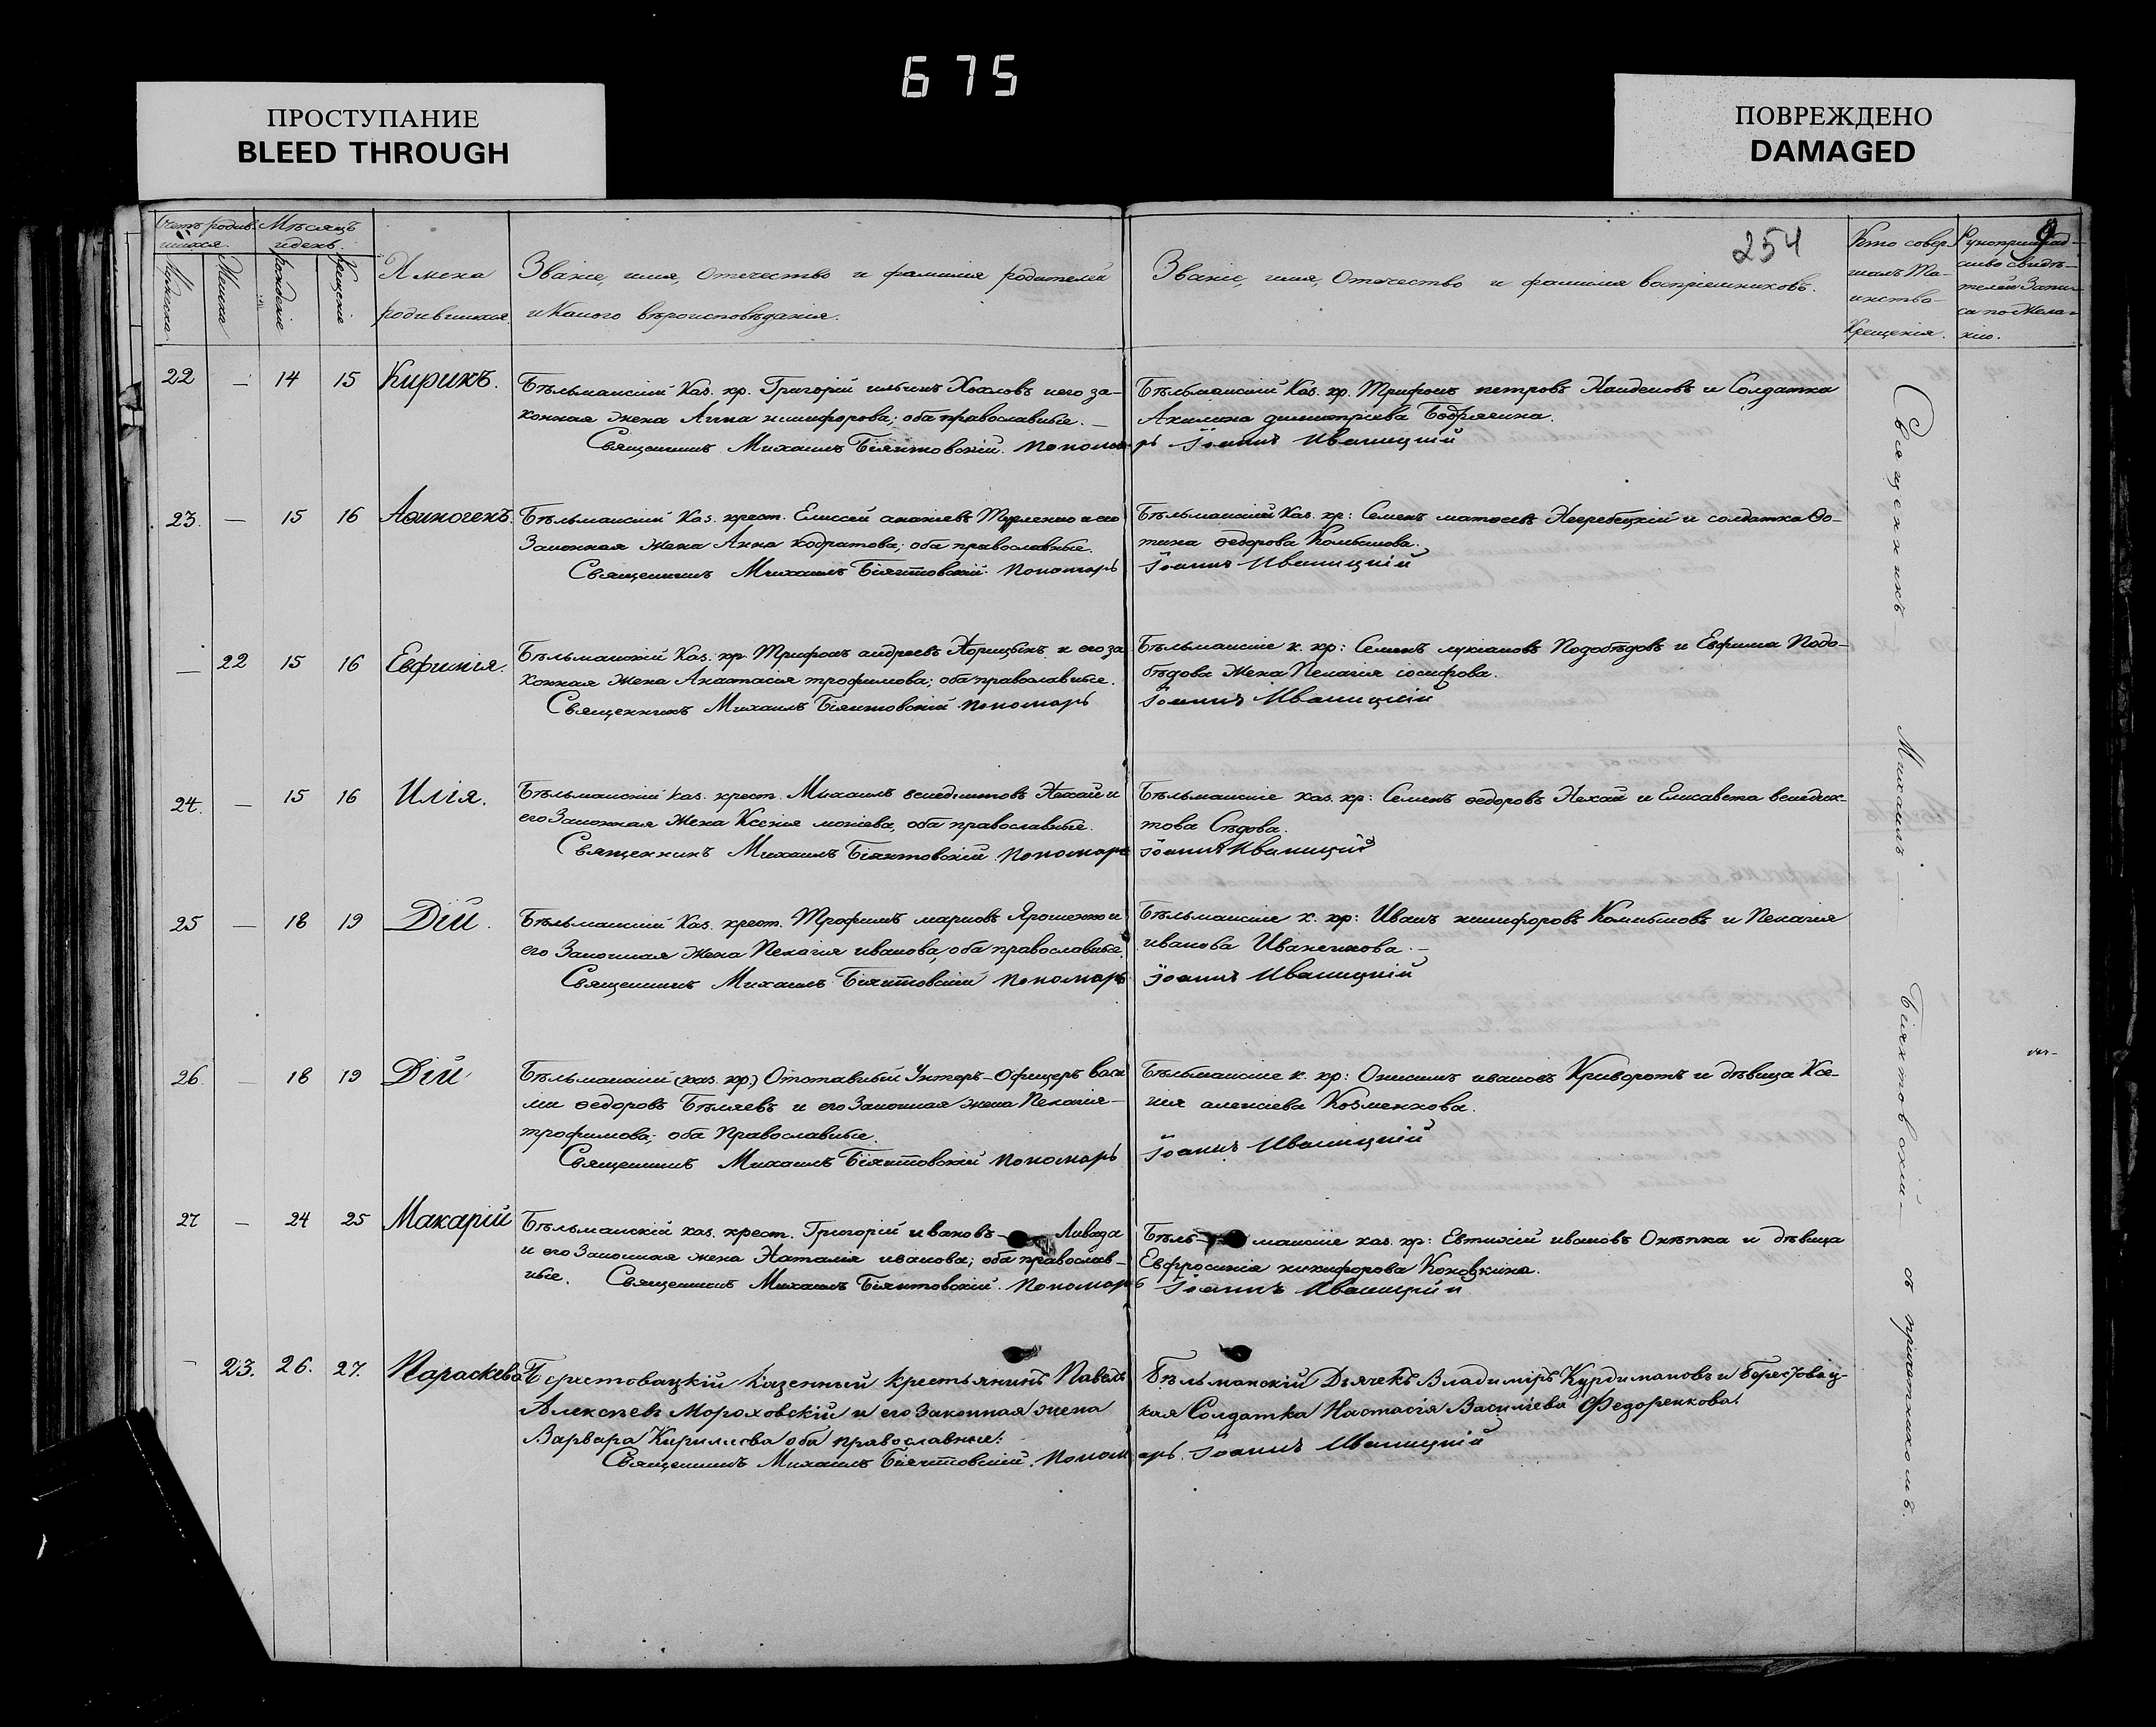 675
ПРОСТУПАНИЕ
BLEED THROUGH
ПОВРЕЖДЕНО
DAMAGED
254
9
Счетъ родив-
шихся.
Мѣсяцъ
и день.
Мужеска
Женска
рожденіе
крещеніе
Имена
родившихся.
Званіе, имя, Отечество и фамилія родителей
и Какого вѣроисповѣданія.
Званіе, имя, Отечество и фамилія воспріемниковъ.
Кто совер-
шалъ Та-
инство
Крещенія.
Рукоприклад-
ство свидѣ-
телей Запи-
си по Жела-
нію.
22 — 14 15 Кирикъ.
Бѣльманскій Каз. кр. Григорій ильинъ и его за-
конная жена Анна никифорова; оба православные. —
Священникъ Михаилъ Біянтовскій. Пономарь Іоаннъ Иваницкій
Бѣльманскій Каз. кр. Трифонъ петровъ Найденовъ и Солдатка
Акилина димитріева
23. — 15 16 Аѳиногенъ.
Бѣльманскій Каз. крест. Елиссей ананіевъ и его
Законная жена Анна кодратова; оба православные.
Священникъ Михаилъ Біянтовскій. Пономарь
Бѣльманскій Каз. кр: Семенъ матѳеевъ и солдатка Ѳо-
тина ѳедорова
Іоаннъ Иваницкій
— 22 15 16 Евфимія.
Бѣльманскій Каз. кр. Трифонъ андреевъ и его за
конная жена Анастасія трофимова; оба православные.
Священникъ Михаилъ Біянтовскій. Пономарь
Бѣльманскіе к. кр: Семенъ лукіановъ Подобѣдовъ и Евфима Подо-
бѣдова Жена Пелагія іосифова.
Іоаннъ Иваницкій
24. — 15 16 Илія.
Бѣльманскій каз. крест. Михаилъ венедиктовъ Нехай и
его Законная Жена Ксенія моисіева, оба православные.
Священникъ Михаилъ Біянтовскій. Пономарь
Бѣльманскіе каз. кр: Семенъ ѳедоровъ Нехай и Елисавета венедик-
това Сѣдова.
Іоаннъ Иваницкій
25 — 18 19 Дій.
Бѣльманскій Каз. крест. Трофимъ марковъ Ярошенко и
его Законная жена Пелагія иванова, оба православные.
Священникъ Михаилъ Біянтовскій Пономарь
Бѣльманскіе к. кр: Иванъ никифоровъ и Пелагія
иванова Иванчикова. —
Іоаннъ Иваницкій
26 — 18 19 Дій
Бѣльманскій (каз. кр.) Отставный Унтеръ-Офицеръ васи
лій ѳедоровъ Бѣляевъ и его Законная жена Пелагія —
трофимова; оба Православные.
Священникъ Михаилъ Біянтовскій Пономарь
Бѣльманскіе к. кр: Онисимъ ивановъ Криворотъ и дѣвица Ксе-
нія алексіева Козменкова.
Іоаннъ Иваницкій
27 — 24 25 Макарій
Бѣльманскій каз. крест. Григорій ивановъ — Ливада
и его Законная жена Наталія иванова; оба православ-
ные. Священникъ Михаилъ Біянтовскій. Пономарь
Бѣль- манскіе каз. кр: Евтихій ивановъ Онѣпка и дѣвица
Евфросинія никифорова Коновкина.
Іоаннъ Иваницкій
— 23. 26. 27. Параскева
Берестовацкій Казенный крестьянинъ Павелъ
Алексѣевъ Мороховскій и его Законная жена
Варвара Кирилиева оба православные:
Священникъ Михаилъ Біянтовскій. Пономарь. Іоаннъ Иваницкій
Бѣльманскій Дьячекъ Владиміръ Курдимановъ и Берестовац-
кая Солдатка Настасія Василіева Федоренкова.
Священникъ — Михаилъ — Біянтовскій — съ причетникомъ.